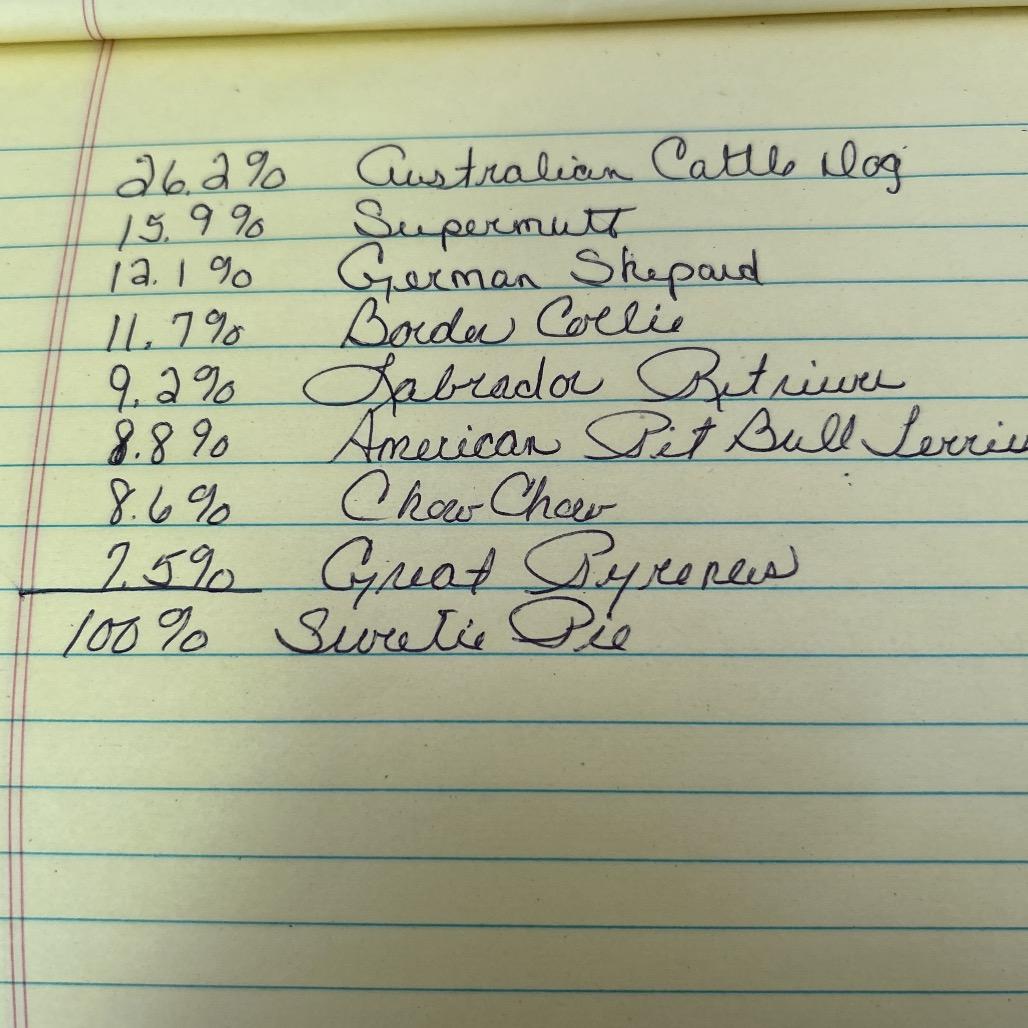 26.2% Australian Cattle Dog
15.9% Supermutt
12.1% German Shepard
11.7% Border Collie
9.2% Labrador Retriever
8.8% American Pit Bull Terrie
8.6% Chow Chow
7.5% Great Pyrenees
100% Sweetie Pie